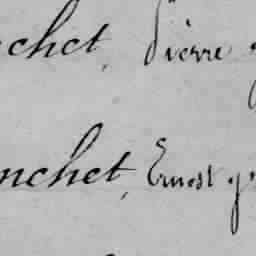 chet, Pierre
nchet, Ernest